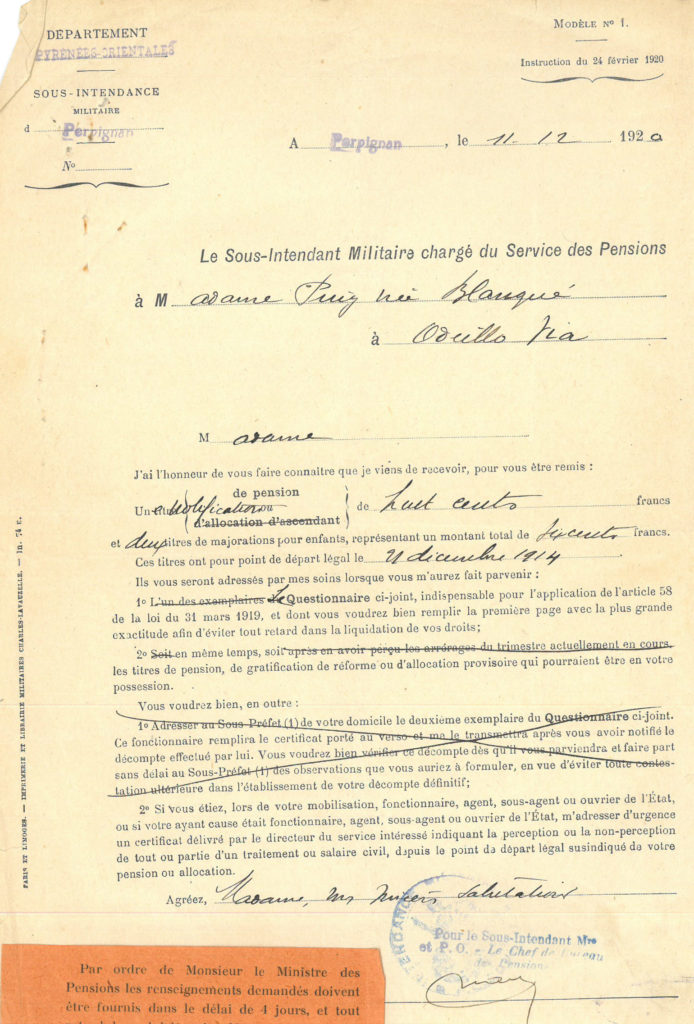 DÉPARTEMENT
PYRÉNÉES-ORIENTALES
SOUS-INTENDANCE
MILITAIRE
d Perpignan
No
MODÈLE No 1.
Instruction du 24 février 1920
A Perpignan, le 11-12 1920
Le Sous-Intendant Militaire chargé du Service des Pensions
à Madame Puig née Blanqué
à Odeillo Via
Madame
J'ai l'honneur de vous faire connaître que je viens de recevoir, pour vous être remis :
de pension
Un notification de huit cents francs
d'allocation d'ascendant
et deux titres de majorations pour enfants, représentant un montant total de six cents francs.
Ces titres ont pour point de départ légal le 21 décembre 1914
Ils vous seront adressés par mes soins lorsque vous m'aurez fait parvenir :
1o L'un des exemplaires Le Questionnaire ci-joint, indispensable pour l'application de l'article 58
de la loi du 31 mars 1919, et dont vous voudrez bien remplir la première page avec la plus grande
exactitude afin d'éviter tout retard dans la liquidation de vos droits;
2o Soit en même temps, soit après en avoir perçu les arrérages du trimestre actuellement en cours,
les titres de pension, de gratification de réforme ou d'allocation provisoire qui pourraient être en votre
possession.
Vous voudrez bien, en outre :
1o Adresser au Sous-Préfet (1) de votre domicile le deuxième exemplaire du Questionnaire ci-joint.
Ce fonctionnaire remplira le certificat porté au verso et me le transmettra après vous avoir notifié le
décompte effectué par lui. Vous voudrez bien vérifier ce décompte dès qu'il vous parviendra et faire part
sans délai au Sous-Préfet (1) des observations que vous auriez à formuler, en vue d'éviter toute contes-
tation ultérieure dans l'établissement de votre décompte définitif;
2o Si vous étiez, lors de votre mobilisation, fonctionnaire, agent, sous-agent ou ouvrier de l'État,
ou si votre ayant cause était fonctionnaire, agent, sous-agent ou ouvrier de l'État, m'adresser d'urgence
un certificat délivré par le directeur du service intéressé indiquant la perception ou la non-perception
de tout ou partie d'un traitement ou salaire civil, depuis le point de départ légal susindiqué de votre
pension ou allocation.
Agréez, Madame, mes sincères salutations
Pour le Sous-Intendant Mre
et P. O. - Le Chef de Bureau
des Pensions
PARIS ET LIMOGES. — IMPRIMERIE ET LIBRAIRIE MILITAIRES CHARLES-LAVAUZELLE.
Par ordre de Monsieur le Ministre des
Pensions les renseignements demandés doivent
être fournis dans le délai de 4 jours, et tout